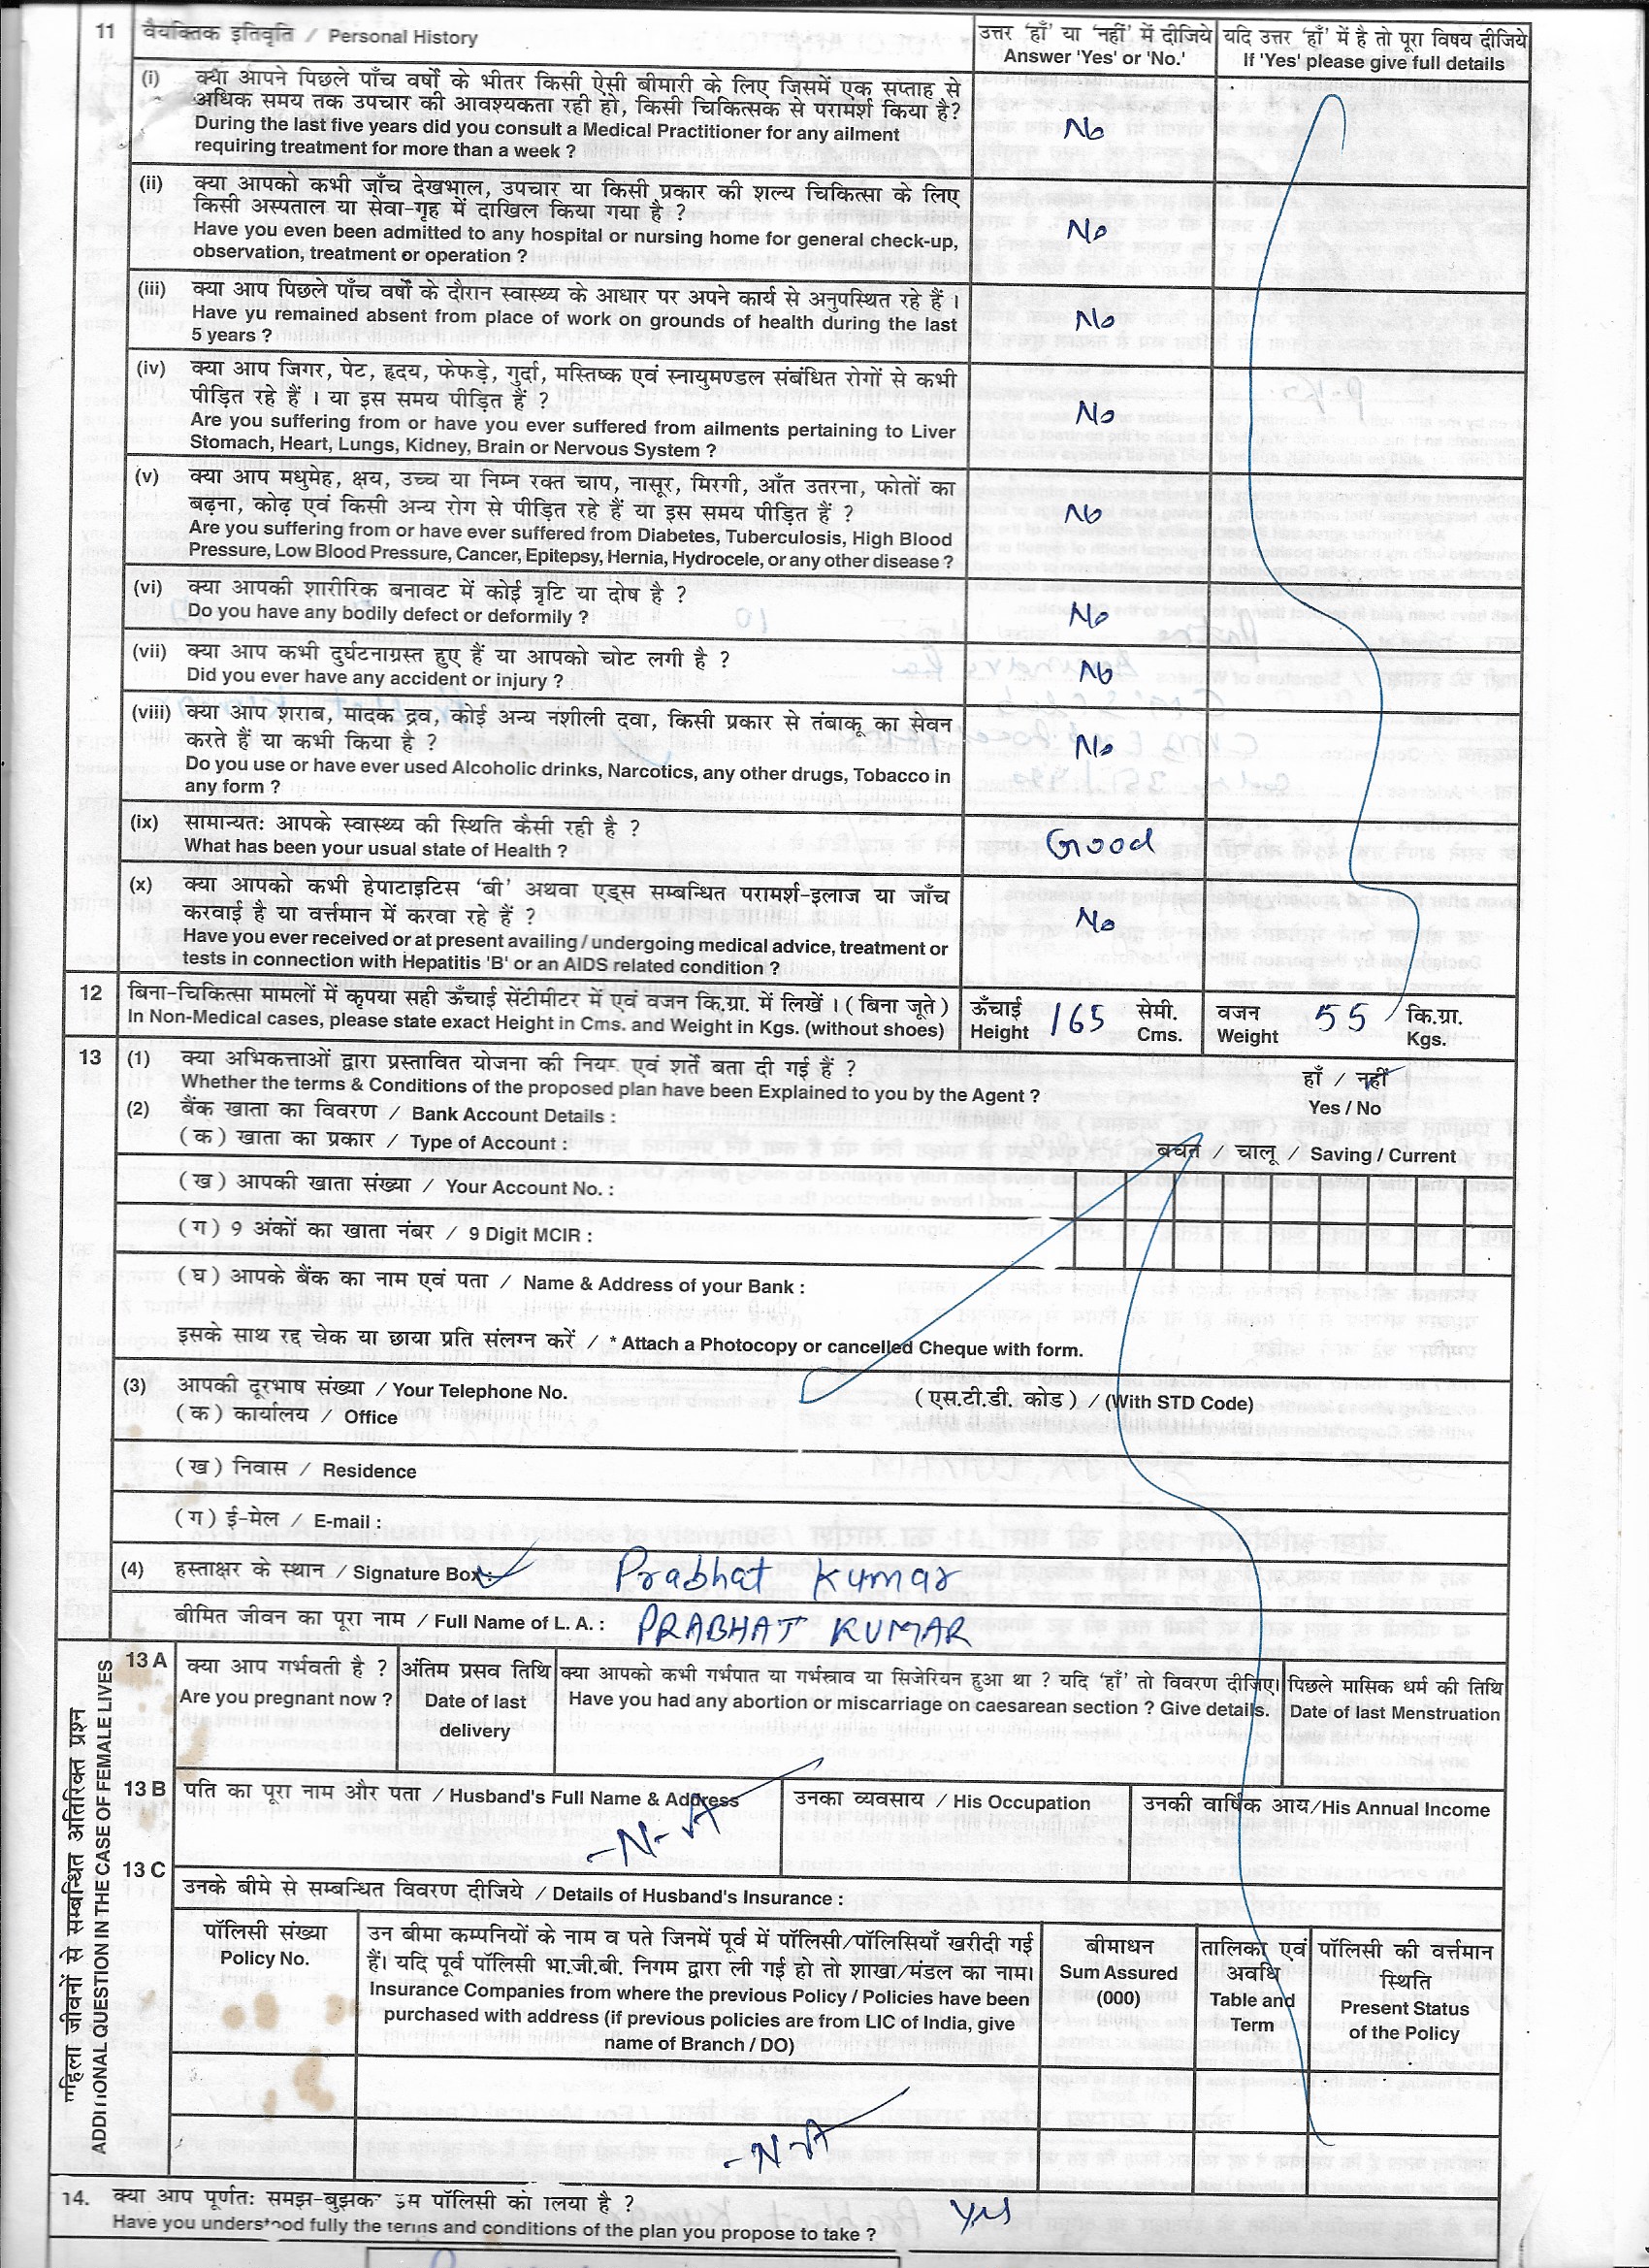 11 वैयक्तिक इतिवृति / Personal History
उत्तर 'हाँ' या 'नहीं' में दीजिये
Answer 'Yes' or 'No.'
यदि उत्तर 'हाँ' में है तो पूरा विषय दीजिये
If 'Yes' please give full details
(i) क्या आपने पिछले पाँच वर्षों के भीतर किसी ऐसी बीमारी के लिए जिसमें एक सप्ताह से
अधिक समय तक उपचार की आवश्यकता रही हो, किसी चिकित्सक से परामर्श किया है?
During the last five years did you consult a Medical Practitioner for any ailment
requiring treatment for more than a week ?
No
(ii) क्या आपको कभी जाँच देखभाल, उपचार या किसी प्रकार की शल्य चिकित्सा के लिए
किसी अस्पताल या सेवा-गृह में दाखिल किया गया है ?
Have you even been admitted to any hospital or nursing home for general check-up,
observation, treatment or operation ?
No
(iii) क्या आप पिछले पाँच वर्षों के दौरान स्वास्थ्य के आधार पर अपने कार्य से अनुपस्थित रहे हैं ।
Have yu remained absent from place of work on grounds of health during the last
5 years ?
No
(iv) क्या आप जिगर, पेट, हृदय, फेफड़े, गुर्दा, मस्तिष्क एवं स्नायुमण्डल संबंधित रोगों से कभी
पीड़ित रहे हैं । या इस समय पीड़ित हैं ?
Are you suffering from or have you ever suffered from ailments pertaining to Liver
Stomach, Heart, Lungs, Kidney, Brain or Nervous System ?
No
(v) क्या आप मधुमेह, क्षय, उच्च या निम्न रक्त चाप, नासूर, मिरगी, आँत उतरना, फोतों का
बढ़ना, कोढ़ एवं किसी अन्य रोग से पीड़ित रहे हैं या इस समय पीड़ित हैं ?
Are you suffering from or have ever suffered from Diabetes, Tuberculosis, High Blood
Pressure, Low Blood Pressure, Cancer, Epitepsy, Hernia, Hydrocele, or any other disease ?
No
(vi) क्या आपकी शारीरिक बनावट में कोई त्रृटि या दोष है ?
Do you have any bodily defect or deformily ?
No
(vii) क्या आप कभी दुर्घटनाग्रस्त हुए हैं या आपको चोट लगी है ?
Did you ever have any accident or injury ?
No
(viii) क्या आप शराब, मादक द्रव, कोई अन्य नशीली दवा, किसी प्रकार से तंबाकू का सेवन
करते हैं या कभी किया है ?
Do you use or have ever used Alcoholic drinks, Narcotics, any other drugs, Tobacco in
any form ?
No
(ix) सामान्यतः आपके स्वास्थ्य की स्थिति कैसी रही है ?
What has been your usual state of Health ?
Good
(x) क्या आपको कभी हेपाटाइटिस 'बी' अथवा एड्स सम्बन्धित परामर्श-इलाज या जाँच
करवाई है या वर्त्तमान में करवा रहे हैं ?
Have you ever received or at present availing / undergoing medical advice, treatment or
tests in connection with Hepatitis 'B' or an AIDS related condition ?
No
12 बिना-चिकित्सा मामलों में कृपया सही ऊँचाई सेंटीमीटर में एवं वजन कि.ग्रा. में लिखें । ( बिना जूते )
In Non-Medical cases, please state exact Height in Cms. and Weight in Kgs. (without shoes)
ऊँचाई
Height 165 सेमी.
Cms.
वजन
Weight 55 कि.ग्रा.
Kgs.
13 (1) क्या अभिकर्त्ताओं द्वारा प्रस्तावित योजना की नियम एवं शर्तें बता दी गई हैं ?
Whether the terms & Conditions of the proposed plan have been Explained to you by the Agent ?
हाँ / नहीं
Yes / No
(2) बैंक खाता का विवरण / Bank Account Details :
( क ) खाता का प्रकार / Type of Account :
बचत / चालू / Saving / Current
( ख ) आपकी खाता संख्या / Your Account No. :
( ग ) 9 अंकों का खाता नंबर / 9 Digit MCIR :
( घ ) आपके बैंक का नाम एवं पता / Name & Address of your Bank :
इसके साथ रद्द चेक या छाया प्रति संलग्न करें / * Attach a Photocopy or cancelled Cheque with form.
(3) आपकी दूरभाष संख्या / Your Telephone No.
( एस.टी.डी. कोड ) / (With STD Code)
( क ) कार्यालय / Office
( ख ) निवास / Residence
( ग ) ई-मेल / E-mail :
(4) हस्ताक्षर के स्थान / Signature Box: Prabhat Kumar
बीमित जीवन का पूरा नाम / Full Name of L. A. : PRABHAT KUMAR
महिला जीवनों से सम्बन्धित अतिरिक्त प्रश्न
ADDITIONAL QUESTION IN THE CASE OF FEMALE LIVES
13 A क्या आप गर्भवती है ?
Are you pregnant now ?
अंतिम प्रसव तिथि
Date of last
delivery
क्या आपको कभी गर्भपात या गर्भस्त्राव या सिजेरियन हुआ था ? यदि 'हाँ' तो विवरण दीजिए।
Have you had any abortion or miscarriage on caesarean section ? Give details.
पिछले मासिक धर्म की तिथि
Date of last Menstruation
13 B पति का पूरा नाम और पता / Husband's Full Name & Address
-N-A
उनका व्यवसाय / His Occupation
उनकी वार्षिक आय/His Annual Income
13 C
उनके बीमे से सम्बन्धित विवरण दीजिये / Details of Husband's Insurance :
पॉलिसी संख्या
Policy No.
उन बीमा कम्पनियों के नाम व पते जिनमें पूर्व में पॉलिसी/पॉलिसियाँ खरीदी गई
हैं। यदि पूर्व पॉलिसी भा.जी.बी. निगम द्वारा ली गई हो तो शाखा/मंडल का नाम।
Insurance Companies from where the previous Policy / Policies have been
purchased with address (if previous policies are from LIC of India, give
name of Branch / DO)
बीमाधन
Sum Assured
(000)
तालिका एवं
अवधि
Table and
Term
पॉलिसी की वर्त्तमान
स्थिति
Present Status
of the Policy
-N-A
14. क्या आप पूर्णतः समझ-बुझकर इस पॉलिसी को लिया है ?
Have you understood fully the terms and conditions of the plan you propose to take ?
Yes